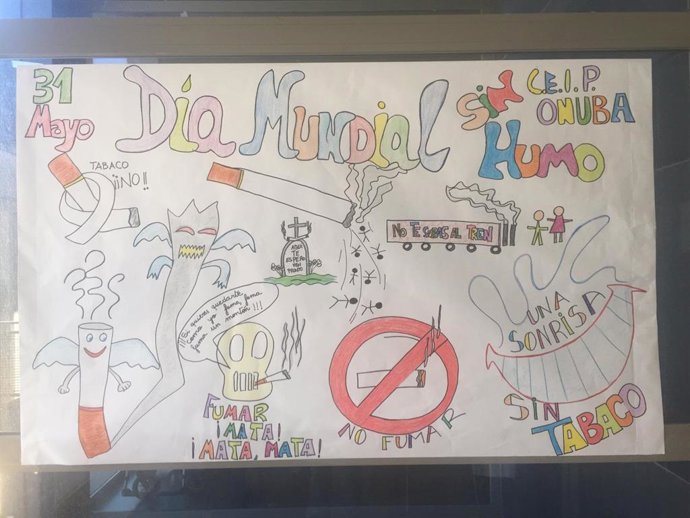 31
Mayo
Día Mundial
sin
Humo
C.E.I.P.
ONUBA
TABACO
¡¡NO!!
AQUI
TE
ESPERO
VEN
PRONTO
NO TE SUBAS AL TREN
¡¡¡Si quieres quedarte
como yo fuma, fuma
fuma un montón!!!
UNA
SONRISA
SIN
TABACO
FUMAR
¡MATA!
¡MATA, MATA!
NO FUMAR